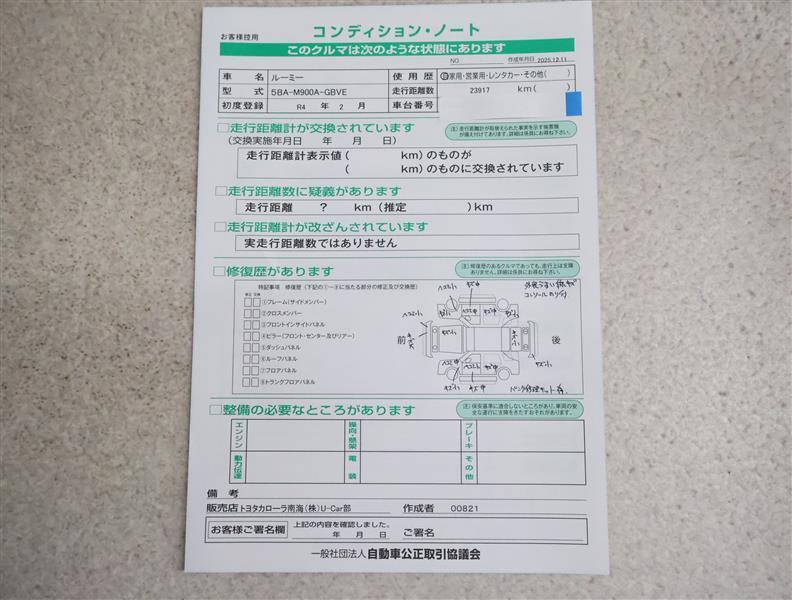 お客様控用
コンディション・ノート
このクルマは次のような状態にあります
NO. 作成年月日 2025.12.11
車名 ルーミー 使用歴 自家用・営業用・レンタカー・その他( )
型式 5BA-M900A-GBVE 走行距離数 23917 km( )
初度登録 R4 年 2 月 車台番号
□走行距離計が交換されています
(注)走行距離計が取替えられた事実を示す確認票が備え付けてあります。詳細は係員にお尋ね下さい。
(交換実施年月日 年 月 日)
走行距離計表示値( km)のものが
( km)のものに交換されています
□走行距離数に疑義があります
走行距離 ? km (推定 )km
□走行距離計が改ざんされています
実走行距離数ではありません
□修復歴があります
(注)修復歴のあるクルマであっても、走行上は支障ありません。詳細は係員にお尋ね下さい。
特記事項 修復歴(下記の①〜⑧に当たる部分の修正及び交換歴)
修正 交換
①フレーム(サイドメンバー)
②クロスメンバー
③フロントインサイドパネル
④ピラー(フロント・センター及びリアー)
⑤ダッシュパネル
⑥ルーフパネル
⑦フロアパネル
⑧トランクフロアパネル
前
後
キズ中
キズ小
パンク修理キット有
□整備の必要なところがあります
(注)保安基準に適合しないところがあり、車両の安全な運行に支障をきたすおそれがあります。
エンジン 操向・懸架 ブレーキ
動力伝達 電装 その他
備考
販売店 トヨタカローラ南海(株)U-Car部 作成者 00821
お客様ご署名欄 上記の内容を確認しました。
年 月 日 ご署名
一般社団法人 自動車公正取引協議会